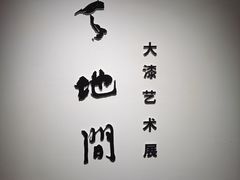 天地間
大漆艺术展